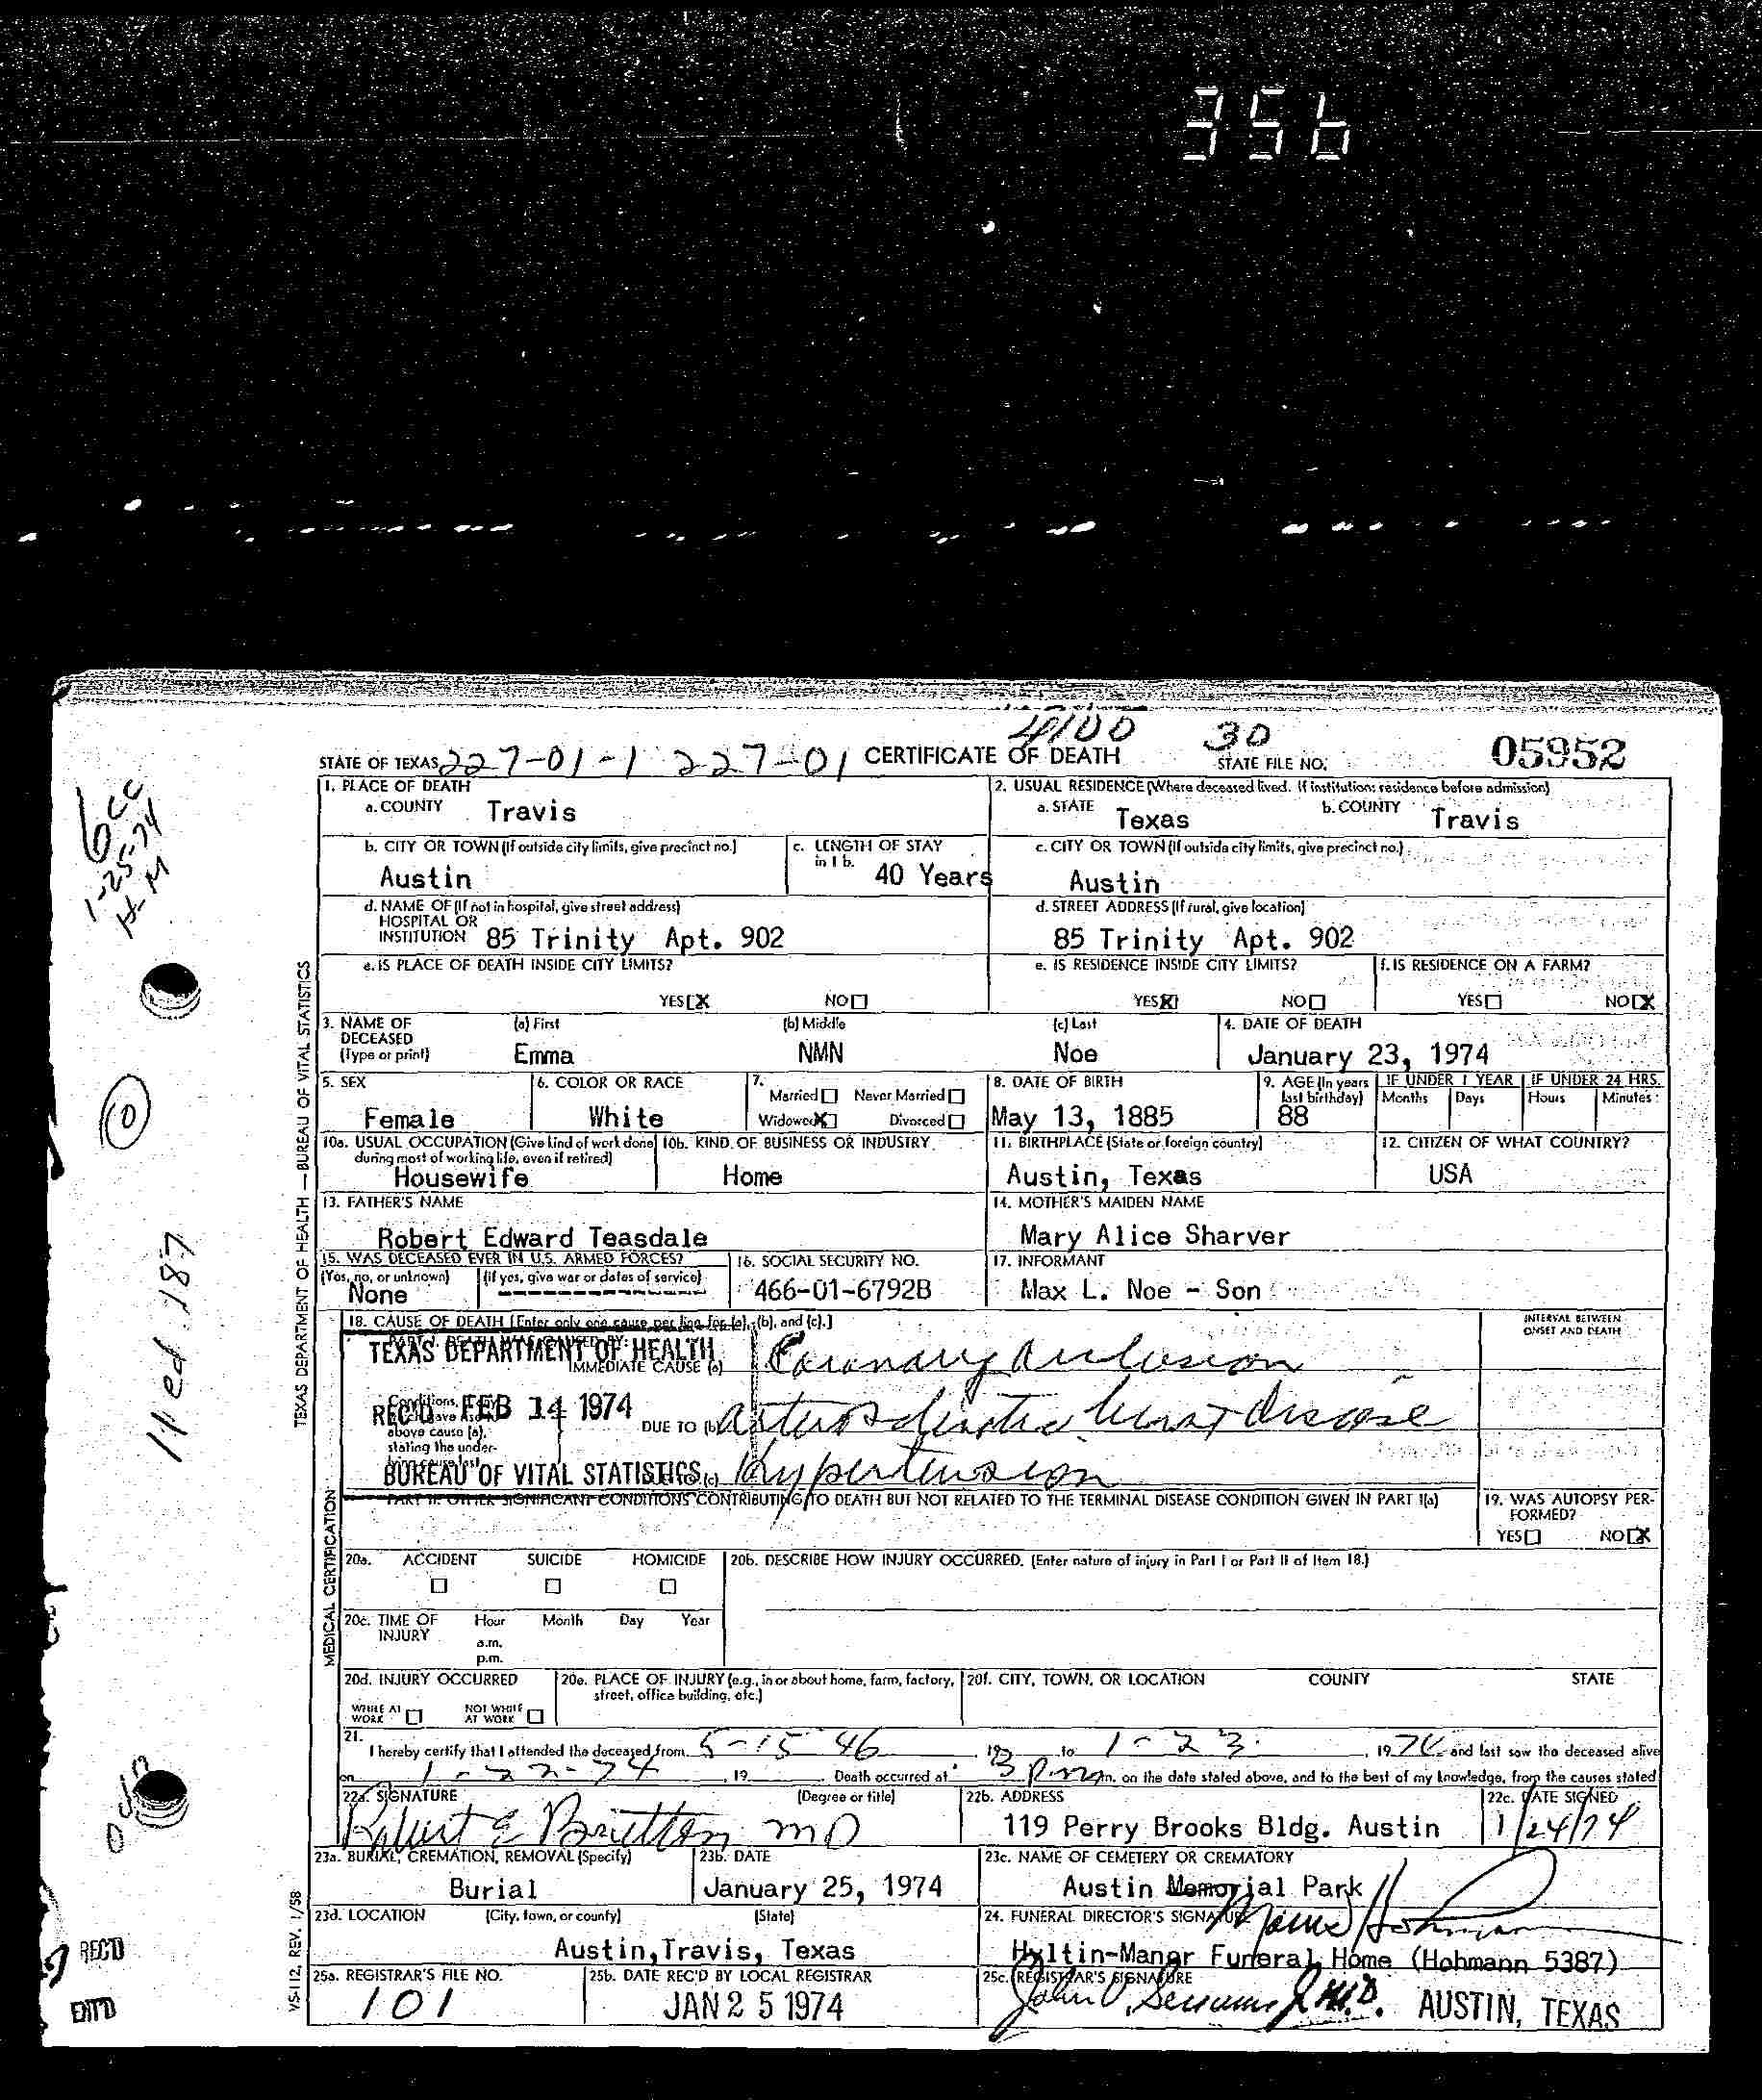 356
4100 30
STATE OF TEXAS 227-01-1 227-01 CERTIFICATE OF DEATH STATE FILE NO. 05952
6cc
1-25-74
H-M
10
11ed.187
RECD
ENT'D
TEXAS DEPARTMENT OF HEALTH — BUREAU OF VITAL STATISTICS
VS-112, REV. 1/58
1. PLACE OF DEATH
a. COUNTY Travis
2. USUAL RESIDENCE (Where deceased lived. If institution: residence before admission)
a. STATE Texas b. COUNTY Travis
b. CITY OR TOWN (If outside city limits, give precinct no.) Austin
c. LENGTH OF STAY in 1 b. 40 Years
c. CITY OR TOWN (If outside city limits, give precinct no.) Austin
d. NAME OF (If not in hospital, give street address)
HOSPITAL OR
INSTITUTION 85 Trinity Apt. 902
d. STREET ADDRESS (If rural, give location)
85 Trinity Apt. 902
e. IS PLACE OF DEATH INSIDE CITY LIMITS?
YES X NO
e. IS RESIDENCE INSIDE CITY LIMITS?
YES X NO
f. IS RESIDENCE ON A FARM?
YES NO X
3. NAME OF DECEASED (Type or print)
(a) First Emma
(b) Middle NMN
(c) Last Noe
4. DATE OF DEATH
January 23, 1974
5. SEX
Female
6. COLOR OR RACE
White
7.
Married Never Married
Widowed X Divorced
8. DATE OF BIRTH
May 13, 1885
9. AGE (In years last birthday)
88
IF UNDER 1 YEAR
Months Days
IF UNDER 24 HRS.
Hours Minutes
10a. USUAL OCCUPATION (Give kind of work done during most of working life, even if retired)
Housewife
10b. KIND OF BUSINESS OR INDUSTRY
Home
11. BIRTHPLACE (State or foreign country)
Austin, Texas
12. CITIZEN OF WHAT COUNTRY?
USA
13. FATHER'S NAME
Robert Edward Teasdale
14. MOTHER'S MAIDEN NAME
Mary Alice Sharver
15. WAS DECEASED EVER IN U.S. ARMED FORCES?
(Yes, no, or unknown) (If yes, give war or dates of service)
None
16. SOCIAL SECURITY NO.
466-01-6792B
17. INFORMANT
Max L. Noe - Son
MEDICAL CERTIFICATION
18. CAUSE OF DEATH [Enter only one cause per line for (a), (b), and (c).]
INTERVAL BETWEEN
ONSET AND DEATH
PART I. DEATH WAS CAUSED BY:
TEXAS DEPARTMENT OF HEALTH
IMMEDIATE CAUSE (a) Coronary occlusion
REC'D FEB 14 1974
Conditions, if any, which gave rise to above cause (a), stating the underlying cause last.
DUE TO (b) arteriosclerotic heart disease
BUREAU OF VITAL STATISTICS
(c) Hypertension
PART II. OTHER SIGNIFICANT CONDITIONS CONTRIBUTING TO DEATH BUT NOT RELATED TO THE TERMINAL DISEASE CONDITION GIVEN IN PART I(a)
19. WAS AUTOPSY PERFORMED?
YES NO X
20a. ACCIDENT SUICIDE HOMICIDE
20b. DESCRIBE HOW INJURY OCCURRED. (Enter nature of injury in Part I or Part II of Item 18.)
20c. TIME OF INJURY Hour Month Day Year
a.m.
p.m.
20d. INJURY OCCURRED
WHILE AT WORK NOT WHILE AT WORK
20e. PLACE OF INJURY (e.g., in or about home, farm, factory, street, office building, etc.)
20f. CITY, TOWN, OR LOCATION COUNTY STATE
21.
I hereby certify that I attended the deceased from 5-15 46, 19 to 1-23, 1974 and last saw the deceased alive
on 1-22-74, 19 Death occurred at 3 P.m m. on the date stated above, and to the best of my knowledge, from the causes stated
22a. SIGNATURE (Degree or title)
Robert E Britton MD
22b. ADDRESS
119 Perry Brooks Bldg. Austin
22c. DATE SIGNED
1/24/74
23a. BURIAL, CREMATION, REMOVAL (Specify)
Burial
23b. DATE
January 25, 1974
23c. NAME OF CEMETERY OR CREMATORY
Austin Memorial Park
23d. LOCATION (City, town, or county) (State)
Austin, Travis, Texas
24. FUNERAL DIRECTOR'S SIGNATURE
Hohmann
Hyltin-Manor Funeral Home (Hohmann 5387)
25a. REGISTRAR'S FILE NO.
101
25b. DATE REC'D BY LOCAL REGISTRAR
JAN 25 1974
25c. REGISTRAR'S SIGNATURE
M.D. AUSTIN, TEXAS